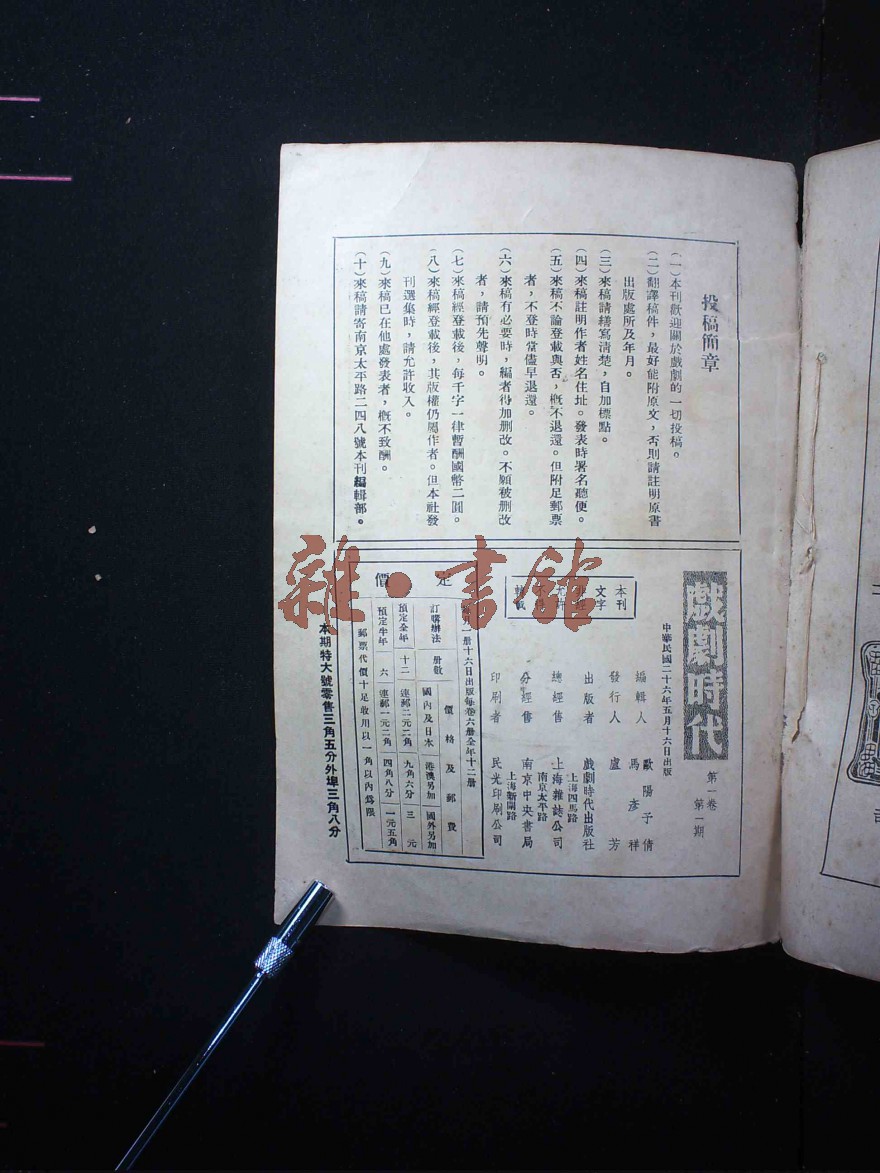 投稿簡章
（一）本刊歡迎關於戲劇的一切投稿。
（二）翻譯稿件，最好能附原文，否則請註明原書
出版處所及年月。
（三）來稿請繕寫清楚，自加標點。
（四）來稿註明作者姓名住址。發表時署名聽便。
（五）來稿不論登載與否，概不退還。但附足郵票
者，不登時當儘早退還。
（六）來稿有必要時，編者得加删改。不願被删改
者，請預先聲明。
（七）來稿經登載後，每千字一律暫酬國幣二圓。
（八）來稿經登載後，其版權仍屬作者。但本社發
刊選集時，請允許收入。
（九）來稿已在他處發表者，概不致酬。
（十）來稿請寄南京太平路二四八號本刊編輯部。
戲劇時代
第一卷
第一期
中華民國二十六年五月十六日出版
編輯人 歐陽予倩
馬彥祥
發行人 盧芳
出版者 戲劇時代出版社
上海四馬路
總經售 上海雜誌公司
南京太平路
分經售 南京中央書局
上海新閘路
印刷者 民光印刷公司
本刊
文字
轉載
定價
每月一册十六日出版每卷六册全年十二册
訂購辦法 册數 價格及郵費
國內及日本 港澳另加 國外另加
預定全年 十二 連郵二元二角 九角六分 三元
預定半年 六 連郵一元二角 四角八分 一元五角
郵票代價十足收用以一角以內爲限
本期特大號零售三角五分外埠三角八分
雜·書館